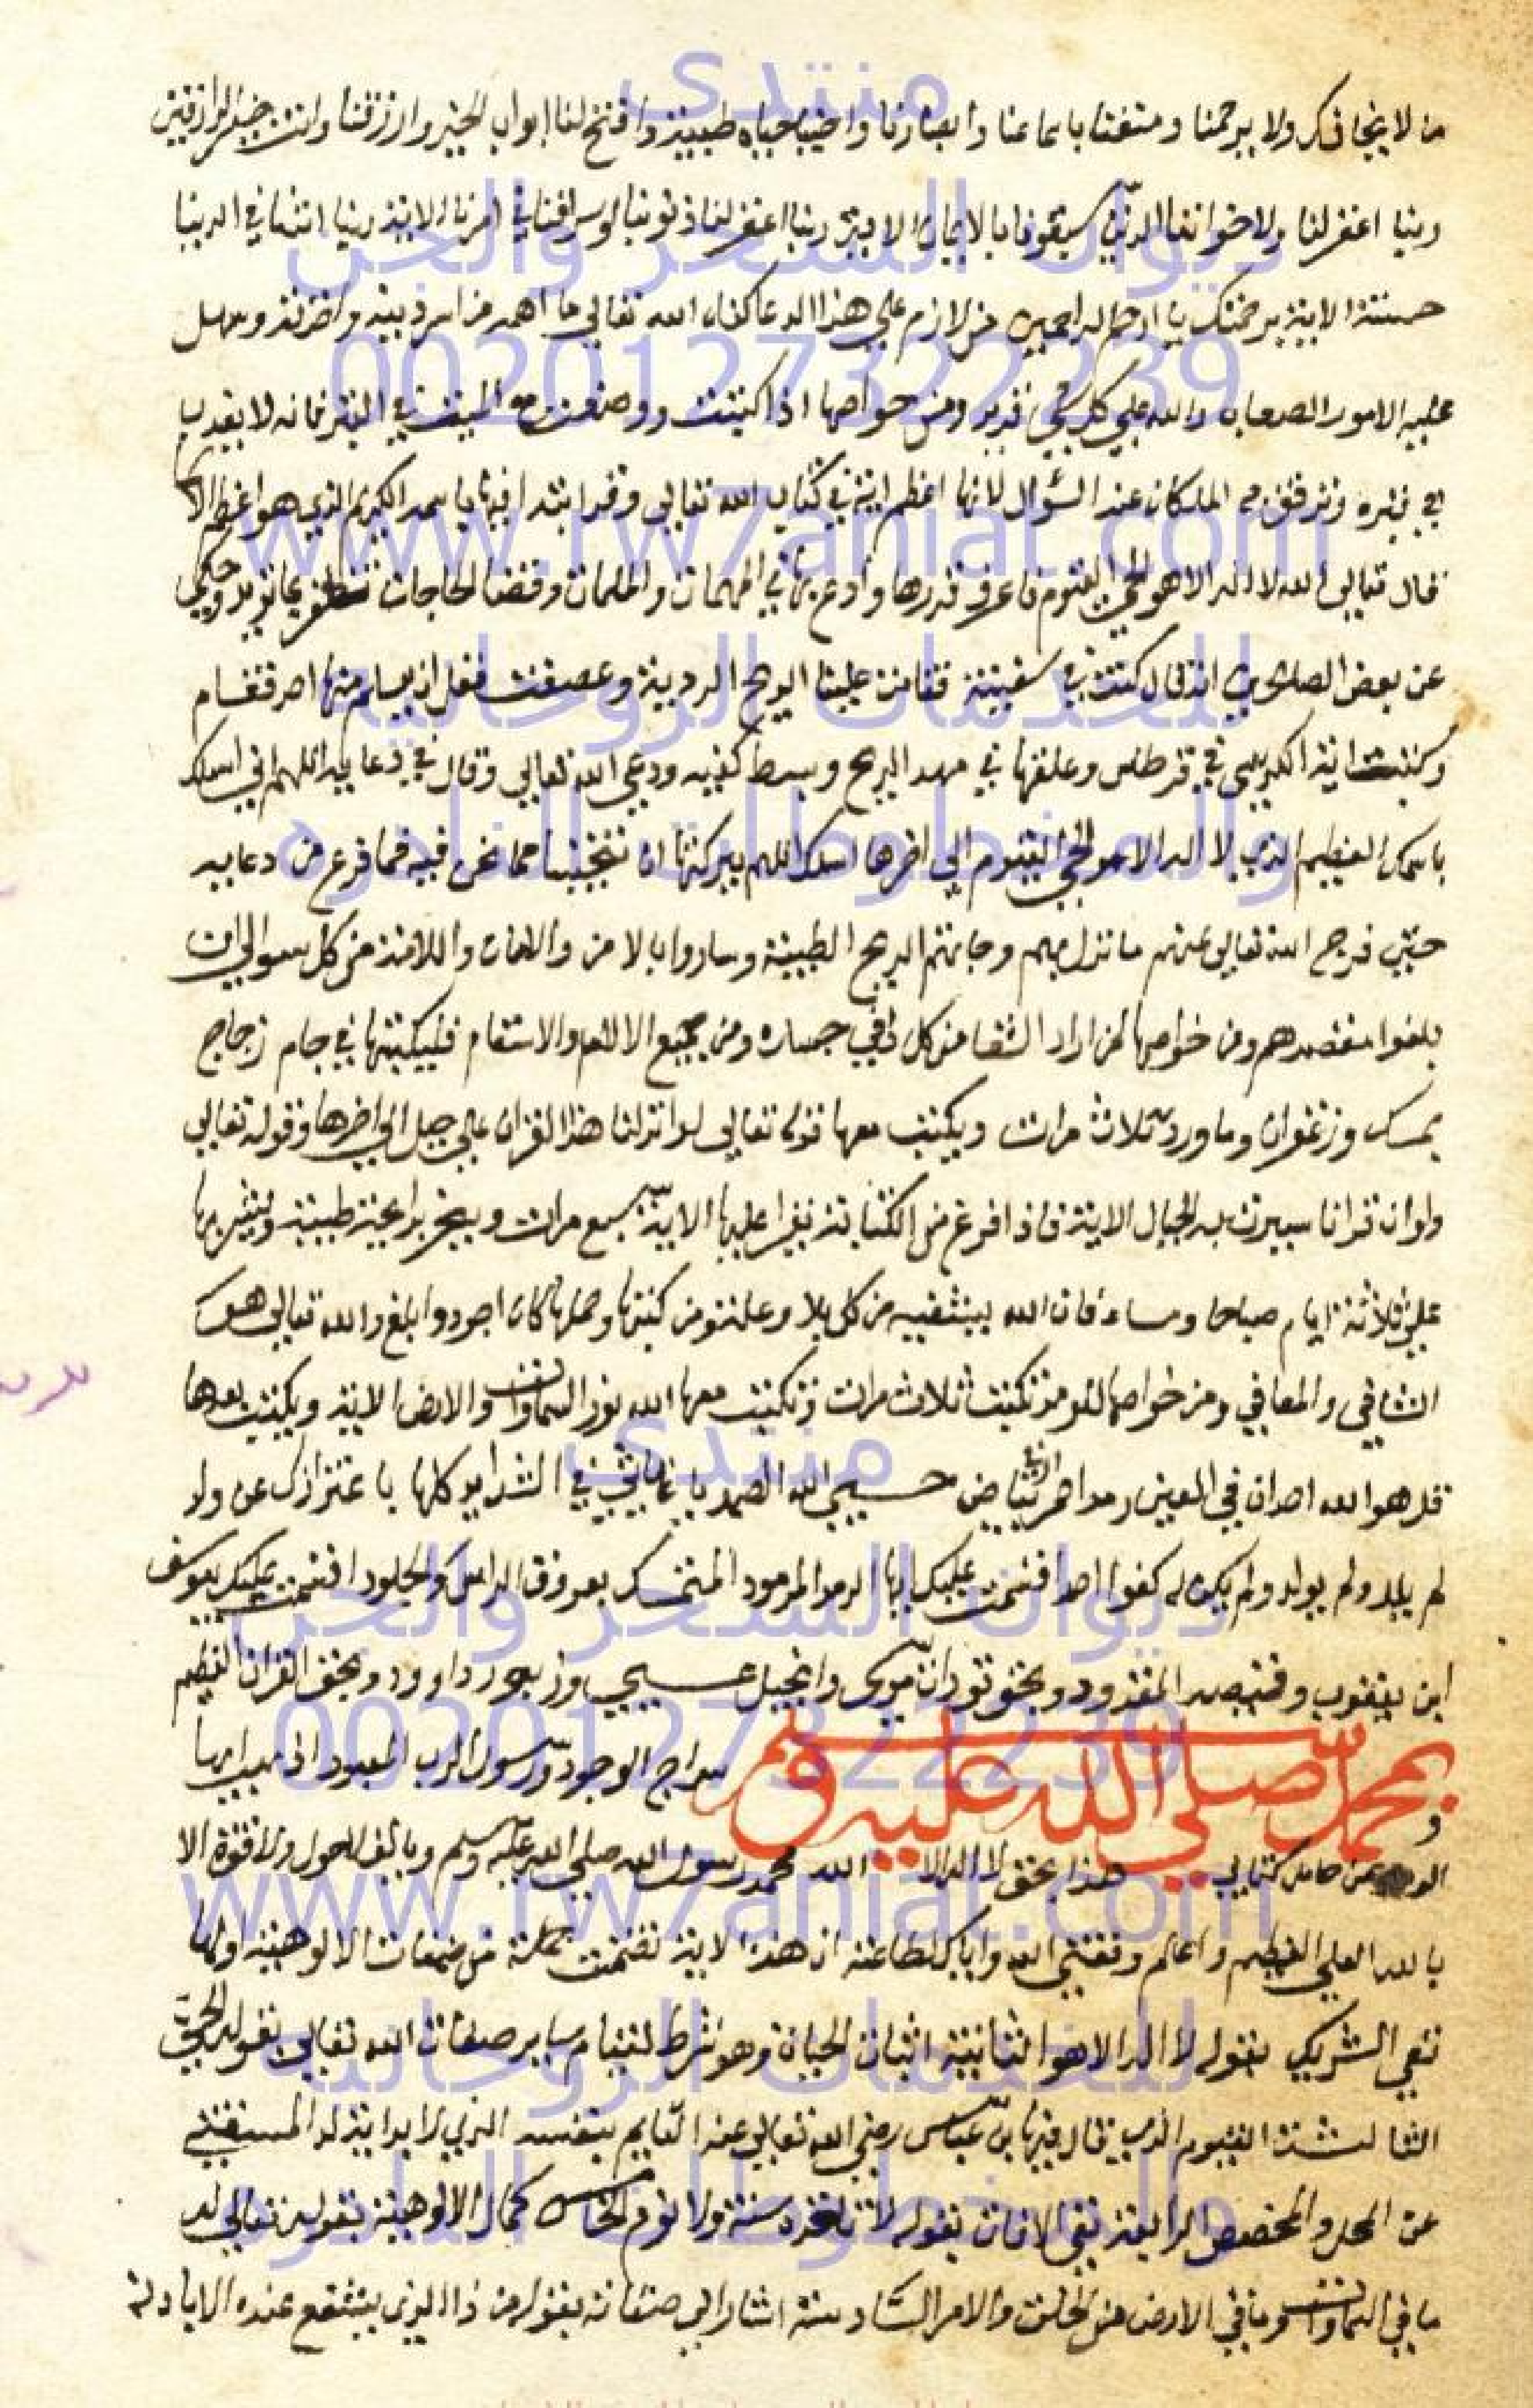 من لا يخافك ولا يرحمنا ومتعنا باسماعنا وابصارنا واحينا حياه طيبة وافتح لنا ابواب الخير وارزقنا وانت خير الرازقين
ربنا اغفر لنا ولاخواننا الذين سبقونا بالايمان الاية ربنا اغفر لنا ذنوبنا واسرافنا في امرنا الاية ربنا اتنا في الدنيا
حسنة الاية برحمتك يا ارحم الراحمين من لازم علي هذا الدعا كفاه الله تعالي ما اهمه من امر دينه واخرته وسهل
عليه الامور الصعاب والله علي كل شي قدير ومن خواصها اذا كتبت ووضعت مع الميت في القبر فانه لا يعذب
في قبره وترفق به الملكان عند السؤال لانها اعظم اية في كتاب الله تعالي وقد ابتدا فيها باسمه الكريم الذي هو اعظم الاسما
فقال تعالي الله لا اله الا هو الحي القيوم فاعرف قدرها وادع بها في المهمات والملمات وقضا الحاجات تظفر بما تريد وحكي
عن بعض الصالحين انه قال كنت في سفينة فقامت علينا الريح الردية وعصفت فقل ان يسلم منها احد فقام
وكتبت اية الكرسي في قرطاس وعلقها في مهد الريح وبسط كفيه ودعي الله تعالي وقال في دعايه اللهم اني اسلك
باسمك العظيم الذي لا اله الا هو الحي القيوم الي اخرها اسلك اللهم ببركتها ان تنجينا مما نحن فيه فما فرغ من دعايه
حتي فرج الله تعالي عنهم ما نزل بهم وجاتهم الريح الطيبة وساروا بالامن والامان والسلامة من كل سو الي ان
بلغوا مقصدهم ومن خواصها لمن اراد الشفا من كل دا في جسده ومن جميع الالام والاسقام فليكتبها في جام زجاج
بمسك وزعفران وما ورد ثلاث مرات ويكتب معها قوله تعالي لو انزلنا هذا القران علي جبل الي اخرها وقوله تعالي
ولو ان قرانا سيرت به الجبال الاية فاذا فرغ من الكتابة يقرا عليها الاية سبع مرات ويبخر برايحة طيبة ويشربها
علي ثلاثة ايام صباحا ومساء فان الله يشفيه من كل بلا وعلة ومن كتبها وحملها كان اجود وابلغ والله تعالي هو
الشافي والمعافي ومن خواصها للرمد تكتب ثلاث مرات وتكتب معها الله نور السماوات والارض الاية ويكتب بعدها
قل هو الله احد ان في العين رمد احمر في البياض حسبي الله الصمد يا غياثي في الشدايد كلها يا عز ذاك عن ولد
لم يلد ولم يولد ولم يكن له كفوا احد اقسمت عليك ايها الرمد المرمود المتمسك بعروق الراس والجلود اقسمت عليك بيوسف
ابن يعقوب وقميصه المقدود وبحق تورات موسي وانجيل عيسي وزبور داوود وبحق القران العظيم
وبمحمد صلي الله عليه وسلم سراج الوجود ورسول الرب المعبود اذهب ايها
الرمد عن حامل كتابي هذا بحق لا اله الا الله محمد رسول الله صلي الله عليه وسلم وبالف لاحول ولا قوة الا
بالله العلي العظيم واعلم وفقني الله واياك لطاعته ان هذه الاية تضمنت جملة من صفات الالوهية اولها
نفي الشريك بقوله لا اله الا هو الثانية اثبات الحياة وهو شرط لقيام ساير صفات الله تعالي بقوله الحي
الثالثة القيوم الذي قال فيها بن عباس رضي الله تعالي عنه القايم بنفسه الذي لا بداية له المستغني
عن المحل والمخصص الرابعة نفي الافات بقوله لا تاخذه سنة ولا نوم الخامس كمال الالوهية بقوله تعالي له
ما في السماوات وما في الارض من الخلق والامر السادسة اشار الي صفاته بقوله من ذا الذي يشفع عنده الا باذنه
منتدى
ديوان السحر والجن
00201127322239
www.rw7aniat.com
للخدمات الروحانيه
والمخطوطات النادره
منتدى
ديوان السحر والجن
00201127322239
www.rw7aniat.com
للخدمات الروحانيه
والمخطوطات النادره